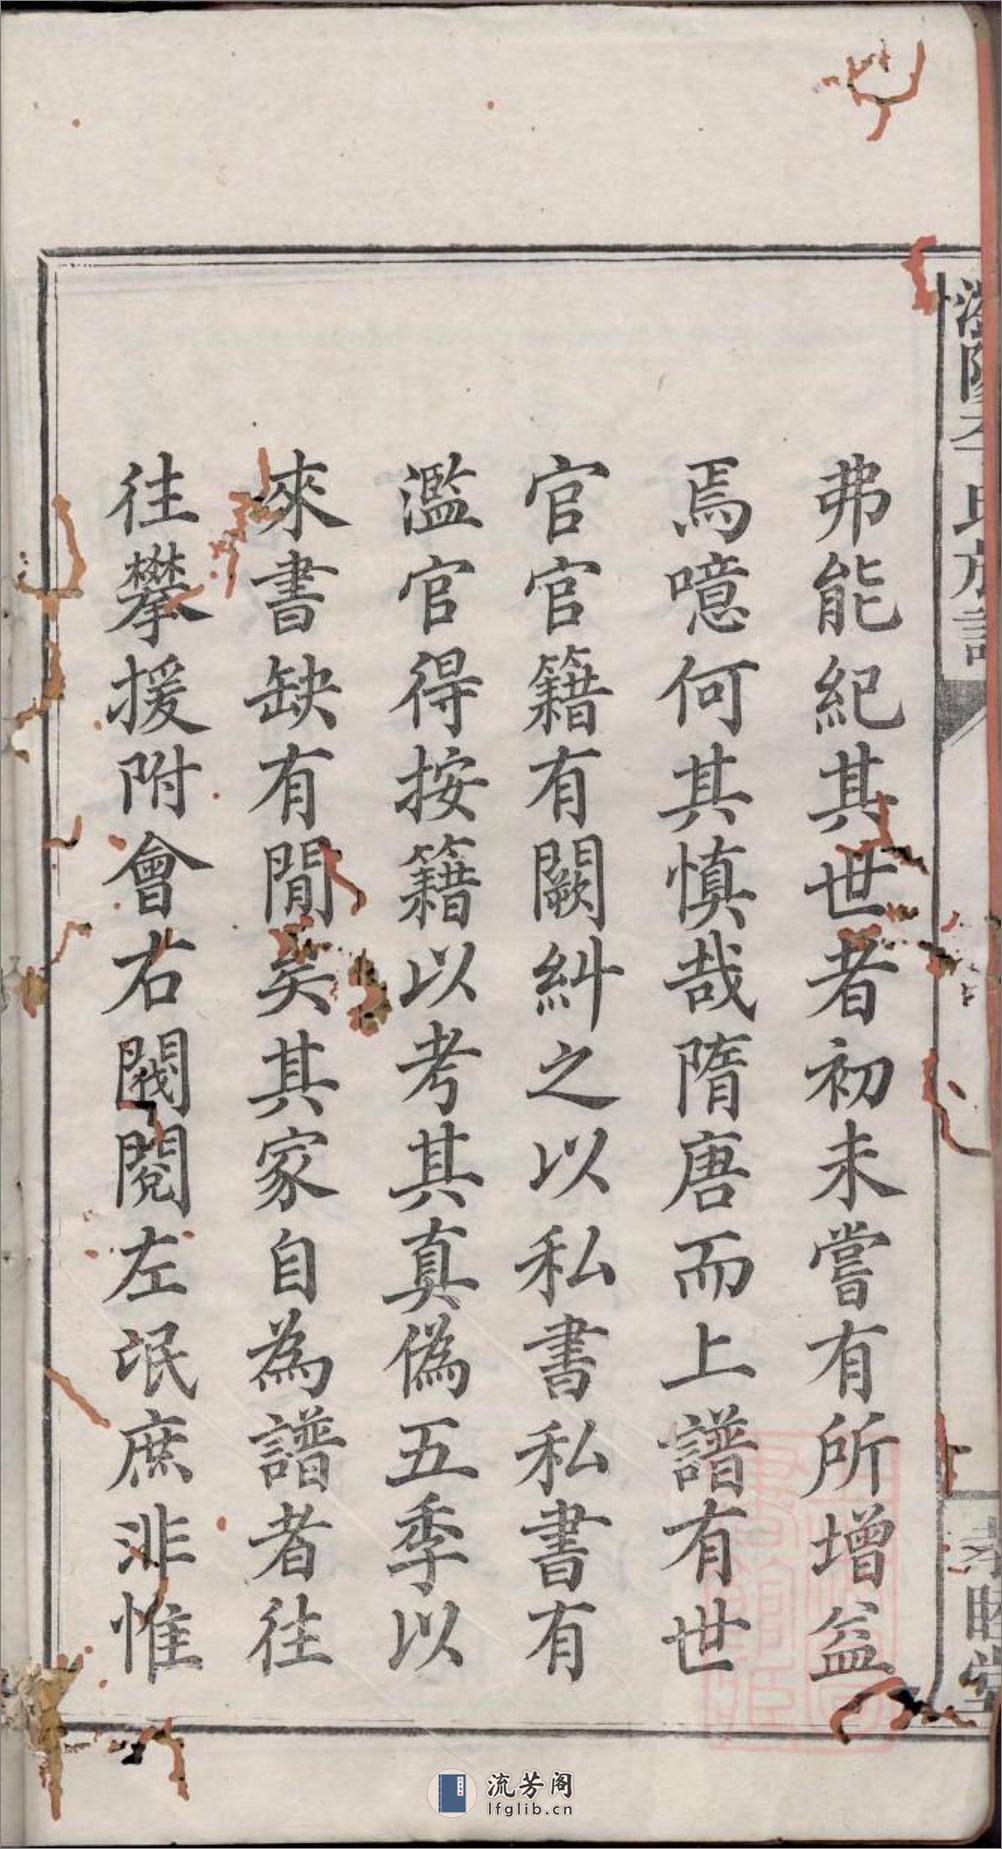 弗能紀其世者初未嘗有所增益
焉噫何其慎哉隋唐而上譜有世
官官籍有闕糾之以私書私書有
濫官得按籍以考其真偽五季以
來書缺有閒矣其家自為譜者往
往攀援附會右閥閱左氓庶非惟
睦堂
流芳阁
lfglib.cn